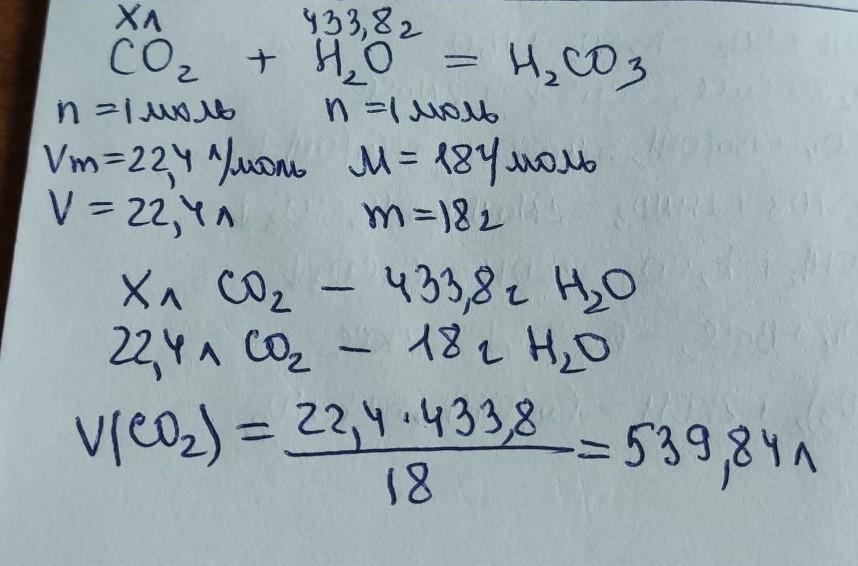 Xл 433,8г
CO₂ + H₂O = H₂CO₃
n =1моль n =1моль
Vm=22,4 л/моль M = 18г/моль
V = 22,4л m=18г
Xл CO₂ – 433,8г H₂O
22,4л CO₂ – 18г H₂O
V(CO₂) = 22,4·433,8 / 18 = 539,84л